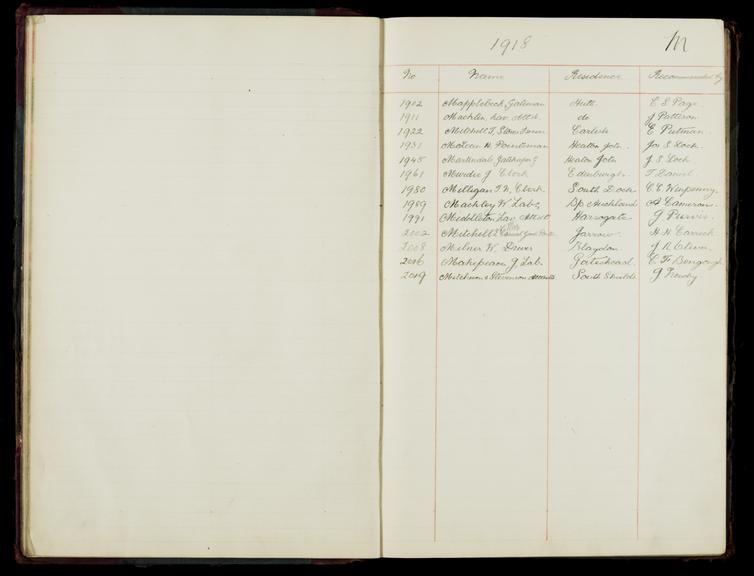 1918 M
No Name Residence Recommended by
1902 Mapplebeck Gateman Hull C E Page
1911 Machlin, Lav. Att. do J Pattison
1922 Mitchell T, Carlisle E Putman
1931 Moteen H. Pointsman Heaton Jctn. Jos S Lock
1945 Martindale Gatekeeper J Heaton Jctn J. S. Lock
1961 Murdie J Clerk Edinburgh T Daniel
1980 Milligan T. W. Clerk South Dock C E Winpenny
1989 Mackley W Lab. Bp Auckland A Cameron
1991 Middleton Lav. Attdt Harrogate J Purvis
2002 Mitchell Jarrow H. H. Carrick
2008 Milner W. Driver Blaydon J R Oliver
2016 Makepeace J Lab. Gateshead C. F. Bengough
2019 & Stevenson South Shields J